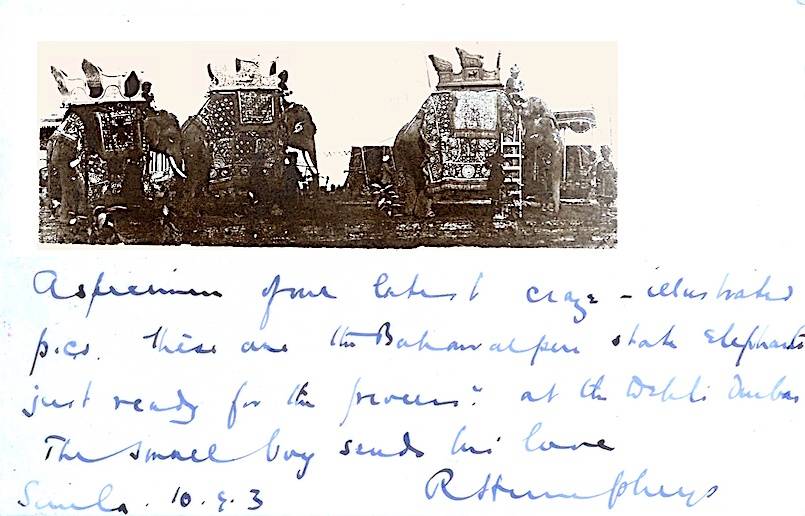 A specimen of our latest craze - illustrated
p.cs. These are the Bahawalpur state Elephants
just ready for the process:n at the Dehli Durbar
The small boy sends his love
Simla. 10.9.3 R Humphreys